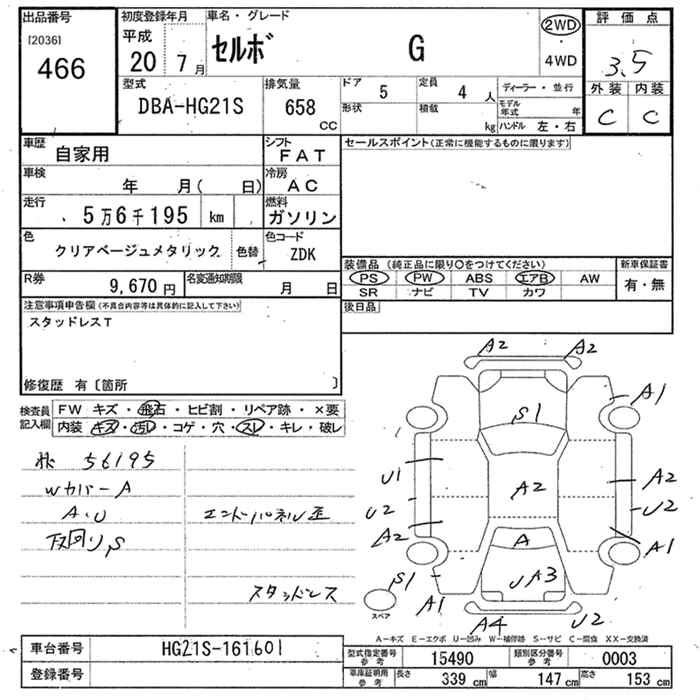 出品番号
[2036]
466
初度登録年月
平成
20年 7月
車名・グレード
セルボ G
2WD
・
4WD
評価点
3.5
外装 内装
C C
型式
DBA-HG21S
排気量
658
CC
ドア 5
形状
定員 4人
積載 kg
ディーラー・並行
モデル年式 年
ハンドル 左・右
車歴
自家用
シフト
FAT
車検
年 月( 日)
冷房
AC
走行
5万6千195 km
燃料
ガソリン
色
クリアベージュメタリック
色替
色コード
ZDK
R券
9,670円
名変通知期限
月 日
セールスポイント(正常に機能するものに限ります)
装備品 (純正品に限り〇をつけてください)
PS PW ABS エアB AW
SR ナビ TV カワ
新車保証書
有・無
後日品
注意事項申告欄(不具合内容等は具体的に記入して下さい)
スタッドレスT
修復歴 有〔箇所 〕
検査員記入欄
FW キズ・飛石・ヒビ割・リペア跡・×要
内装 キズ・汚レ・コゲ・穴・スレ・キレ・破レ
56195
Wカバー A
A.U
下回りS
エンドパネル歪
スタッドレス
A2 A2
S1
A1
U1
A2
A2
U2
U2
A2
A
A1
S1
A1
U A3
A4
U2
スペア
A－キズ E－エクボ U－凹み W－補修跡 S－サビ C－腐食 XX－交換済
車台番号
HG21S-161601
登録番号
型式指定番号
参考
15490
類別区分番号
参考
0003
車庫証明用
参考
長さ 339 cm
幅 147 cm
高さ 153 cm